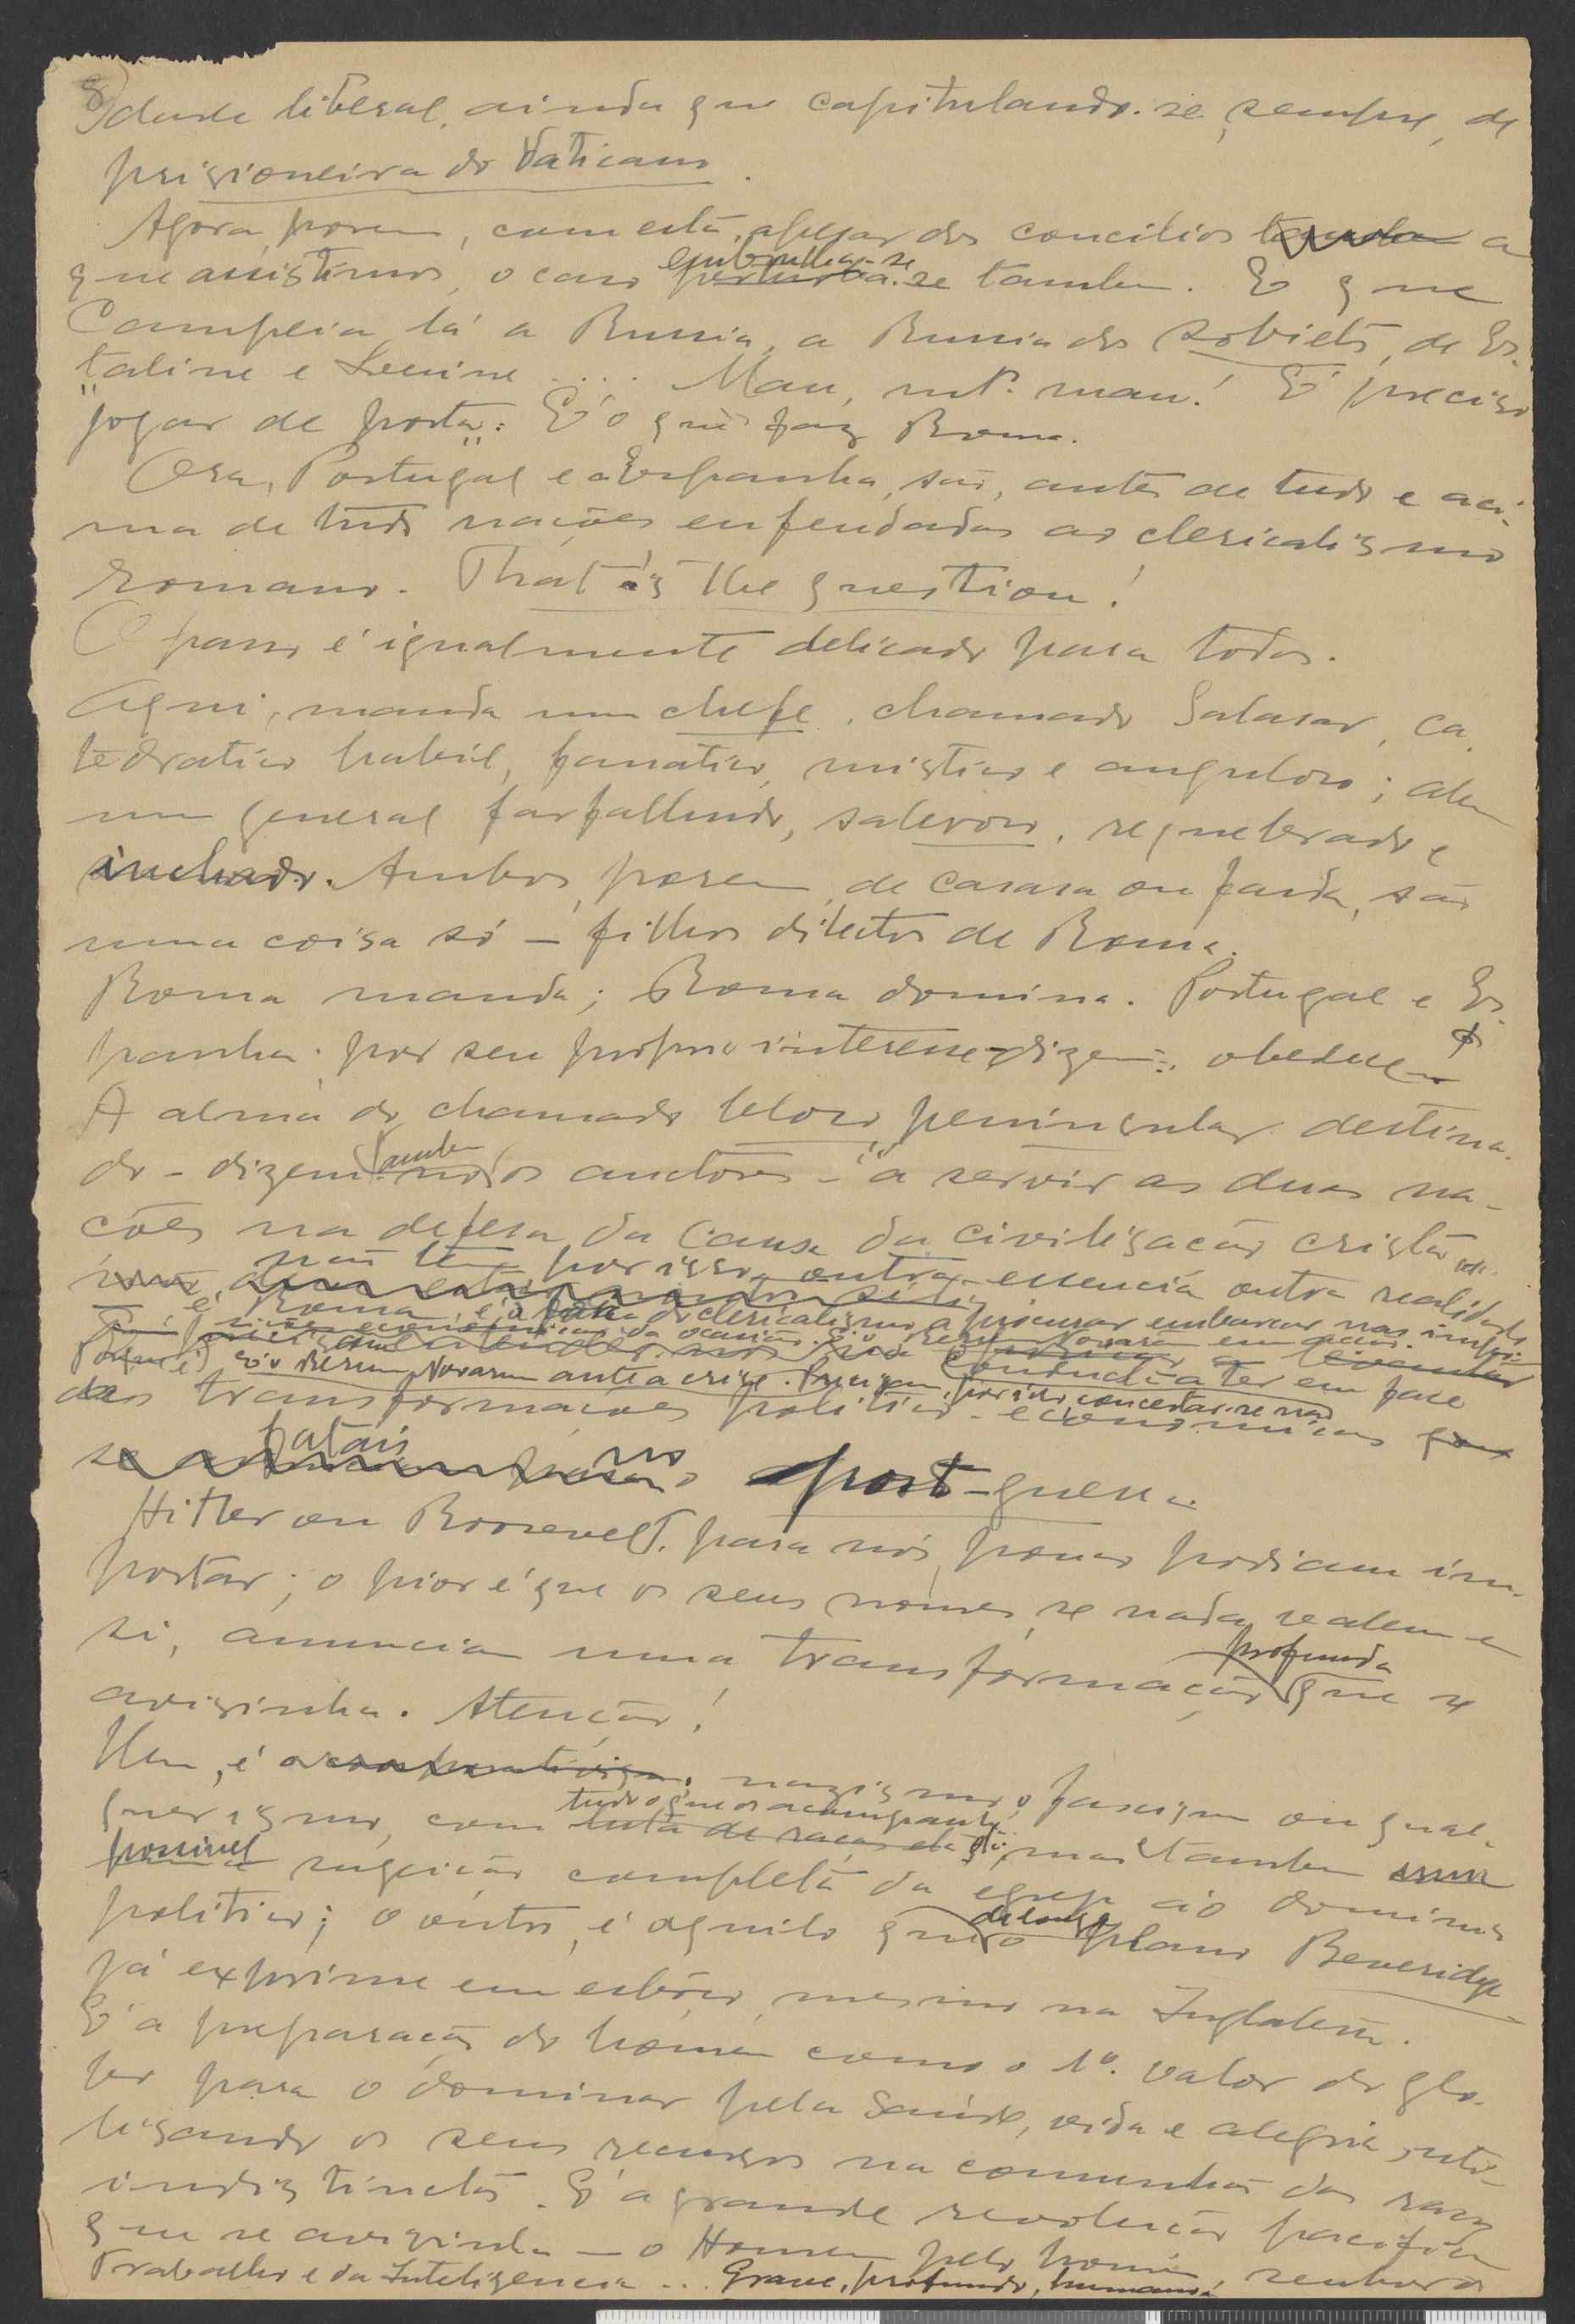 8) dade liberal, ainda que capitulando-se, sempre, de
prisioneira do Vaticano.
Agora, porem, com esta, apesar dos concilios a
que assistimos, o caso embrulha-se tambem. É que
Campeia lá a Russia, a Russia dos sobiets, de Es-
taline e Lenine .... Mau, mtº. mau! É preciso
"jogar de porta": É o que faz Roma.
Ora, Portugal e a Espanha, são, antes de tudo e aci-
ma de tudo nações enfeudadas ao clericalismo
romano. That is the question!
O passo é igualmente delicado para todos.
Aqui, manda um chefe, chamado Salasar, ca-
tedratico habil, fanatico, mistico e anguloso; alem
um general farfalhudo, saleroso, requebrado e
inchado. Ambos, porem, de casaca ou farda, são
uma coisa só – filhos dilectos de Roma.
Roma manda; Roma domina. Portugal e Es-
panha, por seu proprio interesse – dizem –, obedecem
A alma do chamado bloco peninsular destina-
do – dizem tambem os auctores – "a servir as duas na-
ções na defesa da causa da civilisação cristã"
não tem por isso outra essencia outra realidade
é Roma, é o clericalismo a procurar embarcar nas
É o Rerum Novarum ante a crise. concertar-se nas
transformações politico-economicas
fatais no post-guerra.
Hitler ou Roosevelt, para nós, pouco podiam im-
portar; o pior é que os seus nomes, se nada valem em
si, anunciam uma transformação profunda que se
avisinha. Atenção!
Um, é o nazismo, o fascismo ou qual-
quer ismo, com tudo o que os acompanha, mas tambem
possivel sugeição completa da egreja ao dominio
politico; o outro, é aquilo que de longe o plano Beveridge
já exprime em esbôço, mesmo na Inglaterra.
É a preparação do homem como o 1º. valor do glo-
bo para o dominar pela Saúde, vida e alegria, uti-
lisando os seus recursos na comunhão das raças
indistinctas. É a grande revolução pacifica
que se avisinha – o Homem pelo homem, senhor do
Trabalho e da Inteligencia ... Grave, profundo, humano!